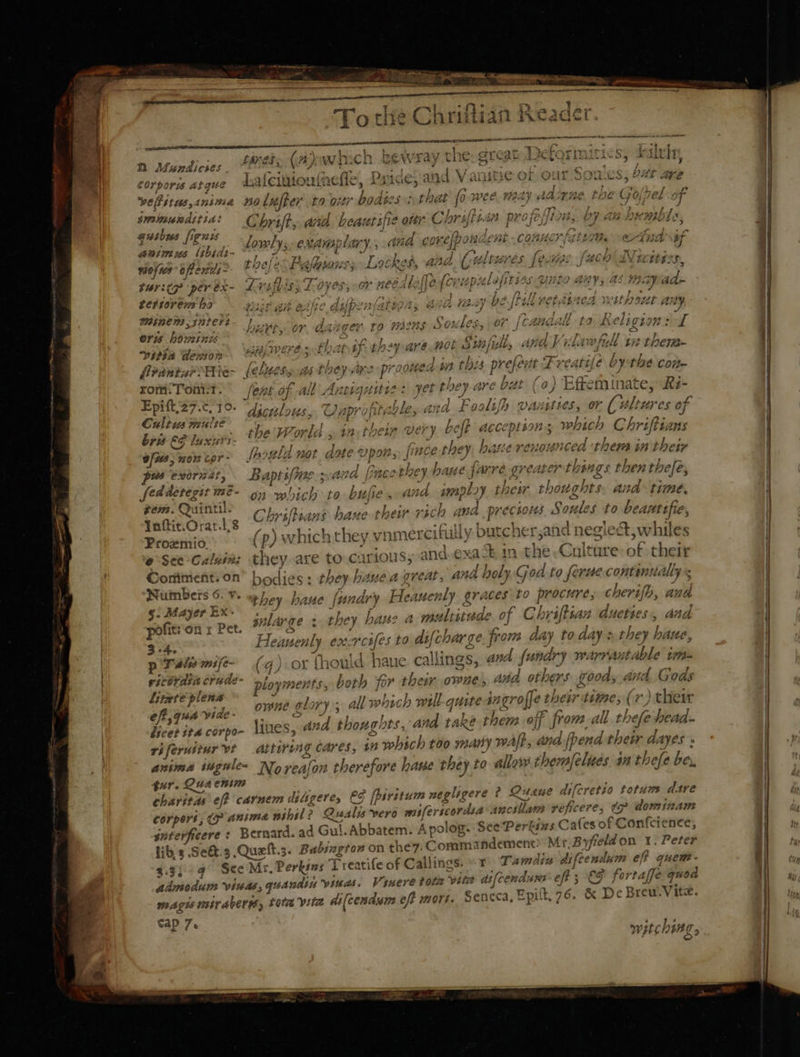 To the Chriſtian Reader.
tares, (n) which bewray the great Deformities, Filth,
Laſciuiouſneſſe, Pride, and Vanitie of our Soules, but are
no luſter to our bodies: that ſo wee may adorne the Goſpel of
Chriſt, and beautifie our Chriſtian profeſſion, by an humble,
lowly, examplary, and correſpondent conuerſation. And if
theſe Lockes, and Cultures ſeeme ſuch Niceties,
Toyes, or needleſſe ſcrupuloſities vnto any, as may ad-
mit an eaſie diſpenſation, and may be ſtill retained without any
hurt, or danger to mens Soules, or ſcandall to Religion: I
anſwere; that if they are not Sinfull, and Vnlawfull in them-
ſelues, as they are prooued in this preſent Treatiſe by the con-
ſent of all Antiquitie: yet they are but (o) Effeminate, Ri-
diculous, Vnprofitable, and Fooliſh vanities, or Cultures of
the World, in their very beſt acception; which Chriſtians
ſhould not dote vpon, ſince they haue renounced them in their
Baptiſme; and ſince they haue farre greater things then theſe,
on which to buſie, and imploy their thoughts and time.
Chriſtians haue their rich and precious Soules to beautifie,
(p) which they vnmercifully butcher, and neglect, whiles
they are to curious, and exact in the Culture of their
bodies: they haue a great, and holy God to ſerue continually;
they haue ſundry Heauenly graces to procure, cheriſh, and
inlarge: they haue a multitude of Chriſtian dueties, and
Heauenly exerciſes to diſcharge from day to day: they haue,
(q) or ſhould haue callings, and ſundry warrantable im-
ployments, both for their owne, and others good, and Gods
owne glory; all which will quite ingroſſe their time, (r) their
liues, and thoughts, and take them off from all theſe head-
attiring cares, in which too many waſt, and ſpend their dayes:
No reaſon therefore haue they to allow themſelues in theſe be-
witching,
n Mundicies
corporis atque
veſtitus, anima
immunditia:
quibus ſignis
animus libidi-
noſus oſtendi-
tur: & per ex-
teriorem ho
minem, interi-
oris hominis
vitia demon-
ſtrantur. Hie-
rom. Tom. 1.
Epiſt. 27. c. 10.
Cultus mulie-
bris & luxuri-
oſus, non cor-
pus exornat,
ſed detegit me-
tem. Quintil.
Inſtit. Orat. l. 8
Proæmio.
o See Caluins
Comment. on
Numbers 6. v.
5. Mayer Ex-
poſit: on 1 Pet.
3. 4.
p Talis miſe-
ricordia crude-
litate plena
eſt, qua vide-
licet ita corpo-
ri ſeruitur vt
anima iugule-
tur. Quæ enim
charitas eſt carnem diligere, & ſpiritum negligere? Quæue diſcretio totum dare
corpori, & anima nihil? Qualis vero miſericordia ancillam reficere, & dominam
interficere: Bernard. ad Gul. Abbatem. Apolog. See Perkins Caſes of Conſcience,
lib. 3. Sect. 3. Quæſt. 3. Babington on the 7. Commandement. Mr. Byfield on 1. Peter
3. 3. q See Mr. Perkins Treatiſe of Callings. r Tamdiu diſcendum eſt quem-
admodum viuas, quandiu viuas. Viuere tota vita diſcendum eſt; & fortaſſe quod
magis miraberis, tota vita diſcendum eſt mori. Seneca, Epiſt. 76. & De Breu. Vitæ.
cap 7.